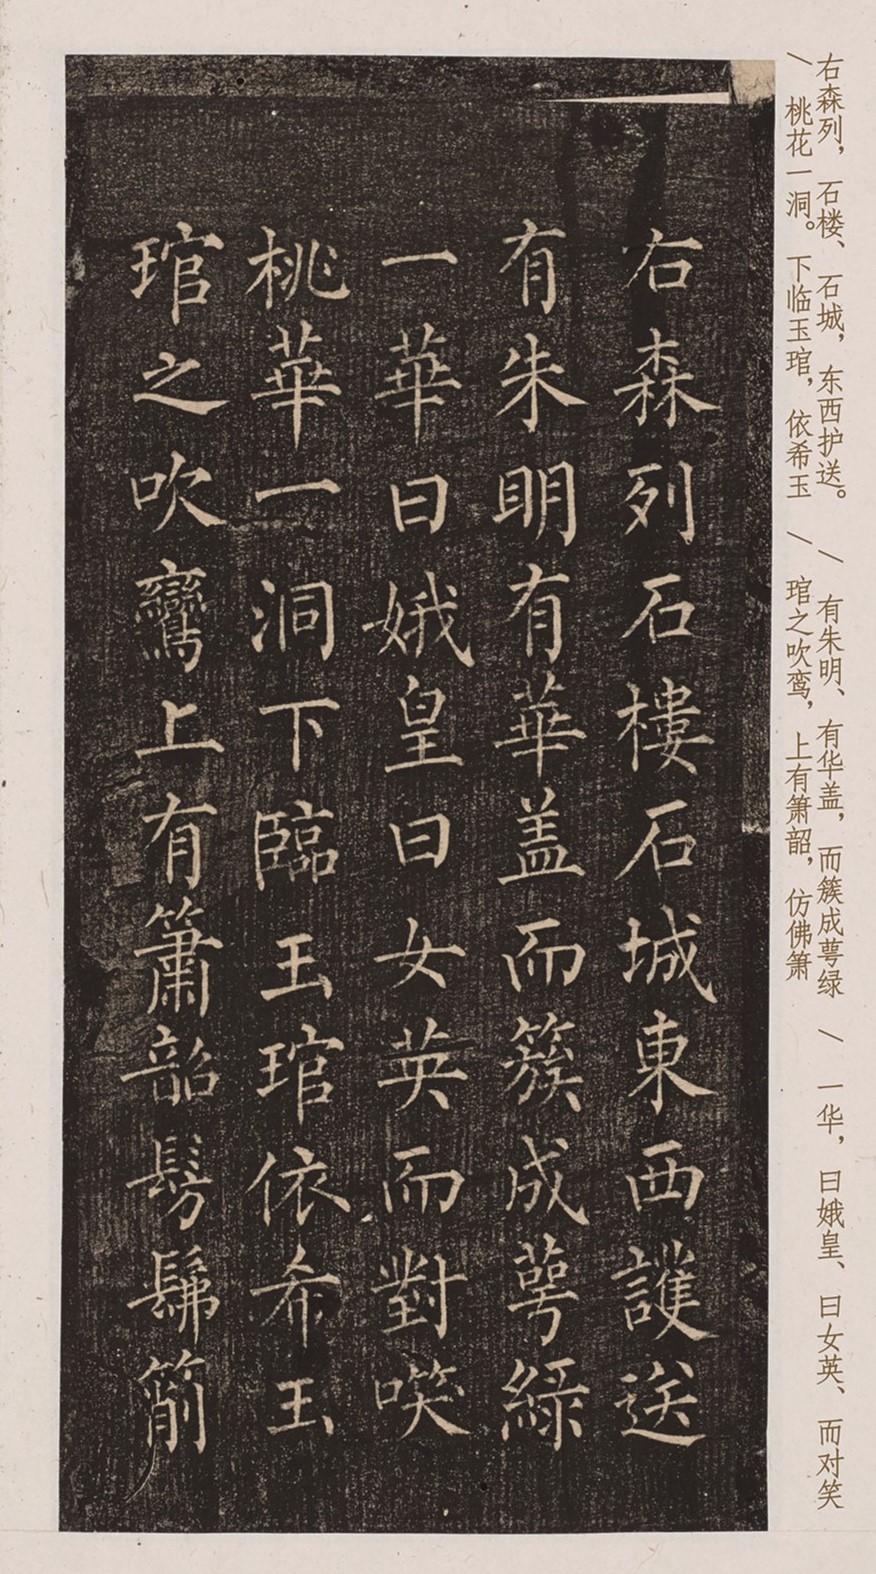 右森列，石楼、石城，东西护送。\有朱明、有华盖，而簇成萼绿\一华，曰娥皇、曰女英、而对笑
\桃花一洞。下临玉琯，依希玉\琯之吹鸾，上有箫韶，仿佛箫
右森列石樓石城東西護送
有朱明有華盖而簇成萼綠
一華曰娥皇曰女英而對唉
桃華一洞下臨玉琯依希玉
琯之吹鸞上有簫韶髣髴箾